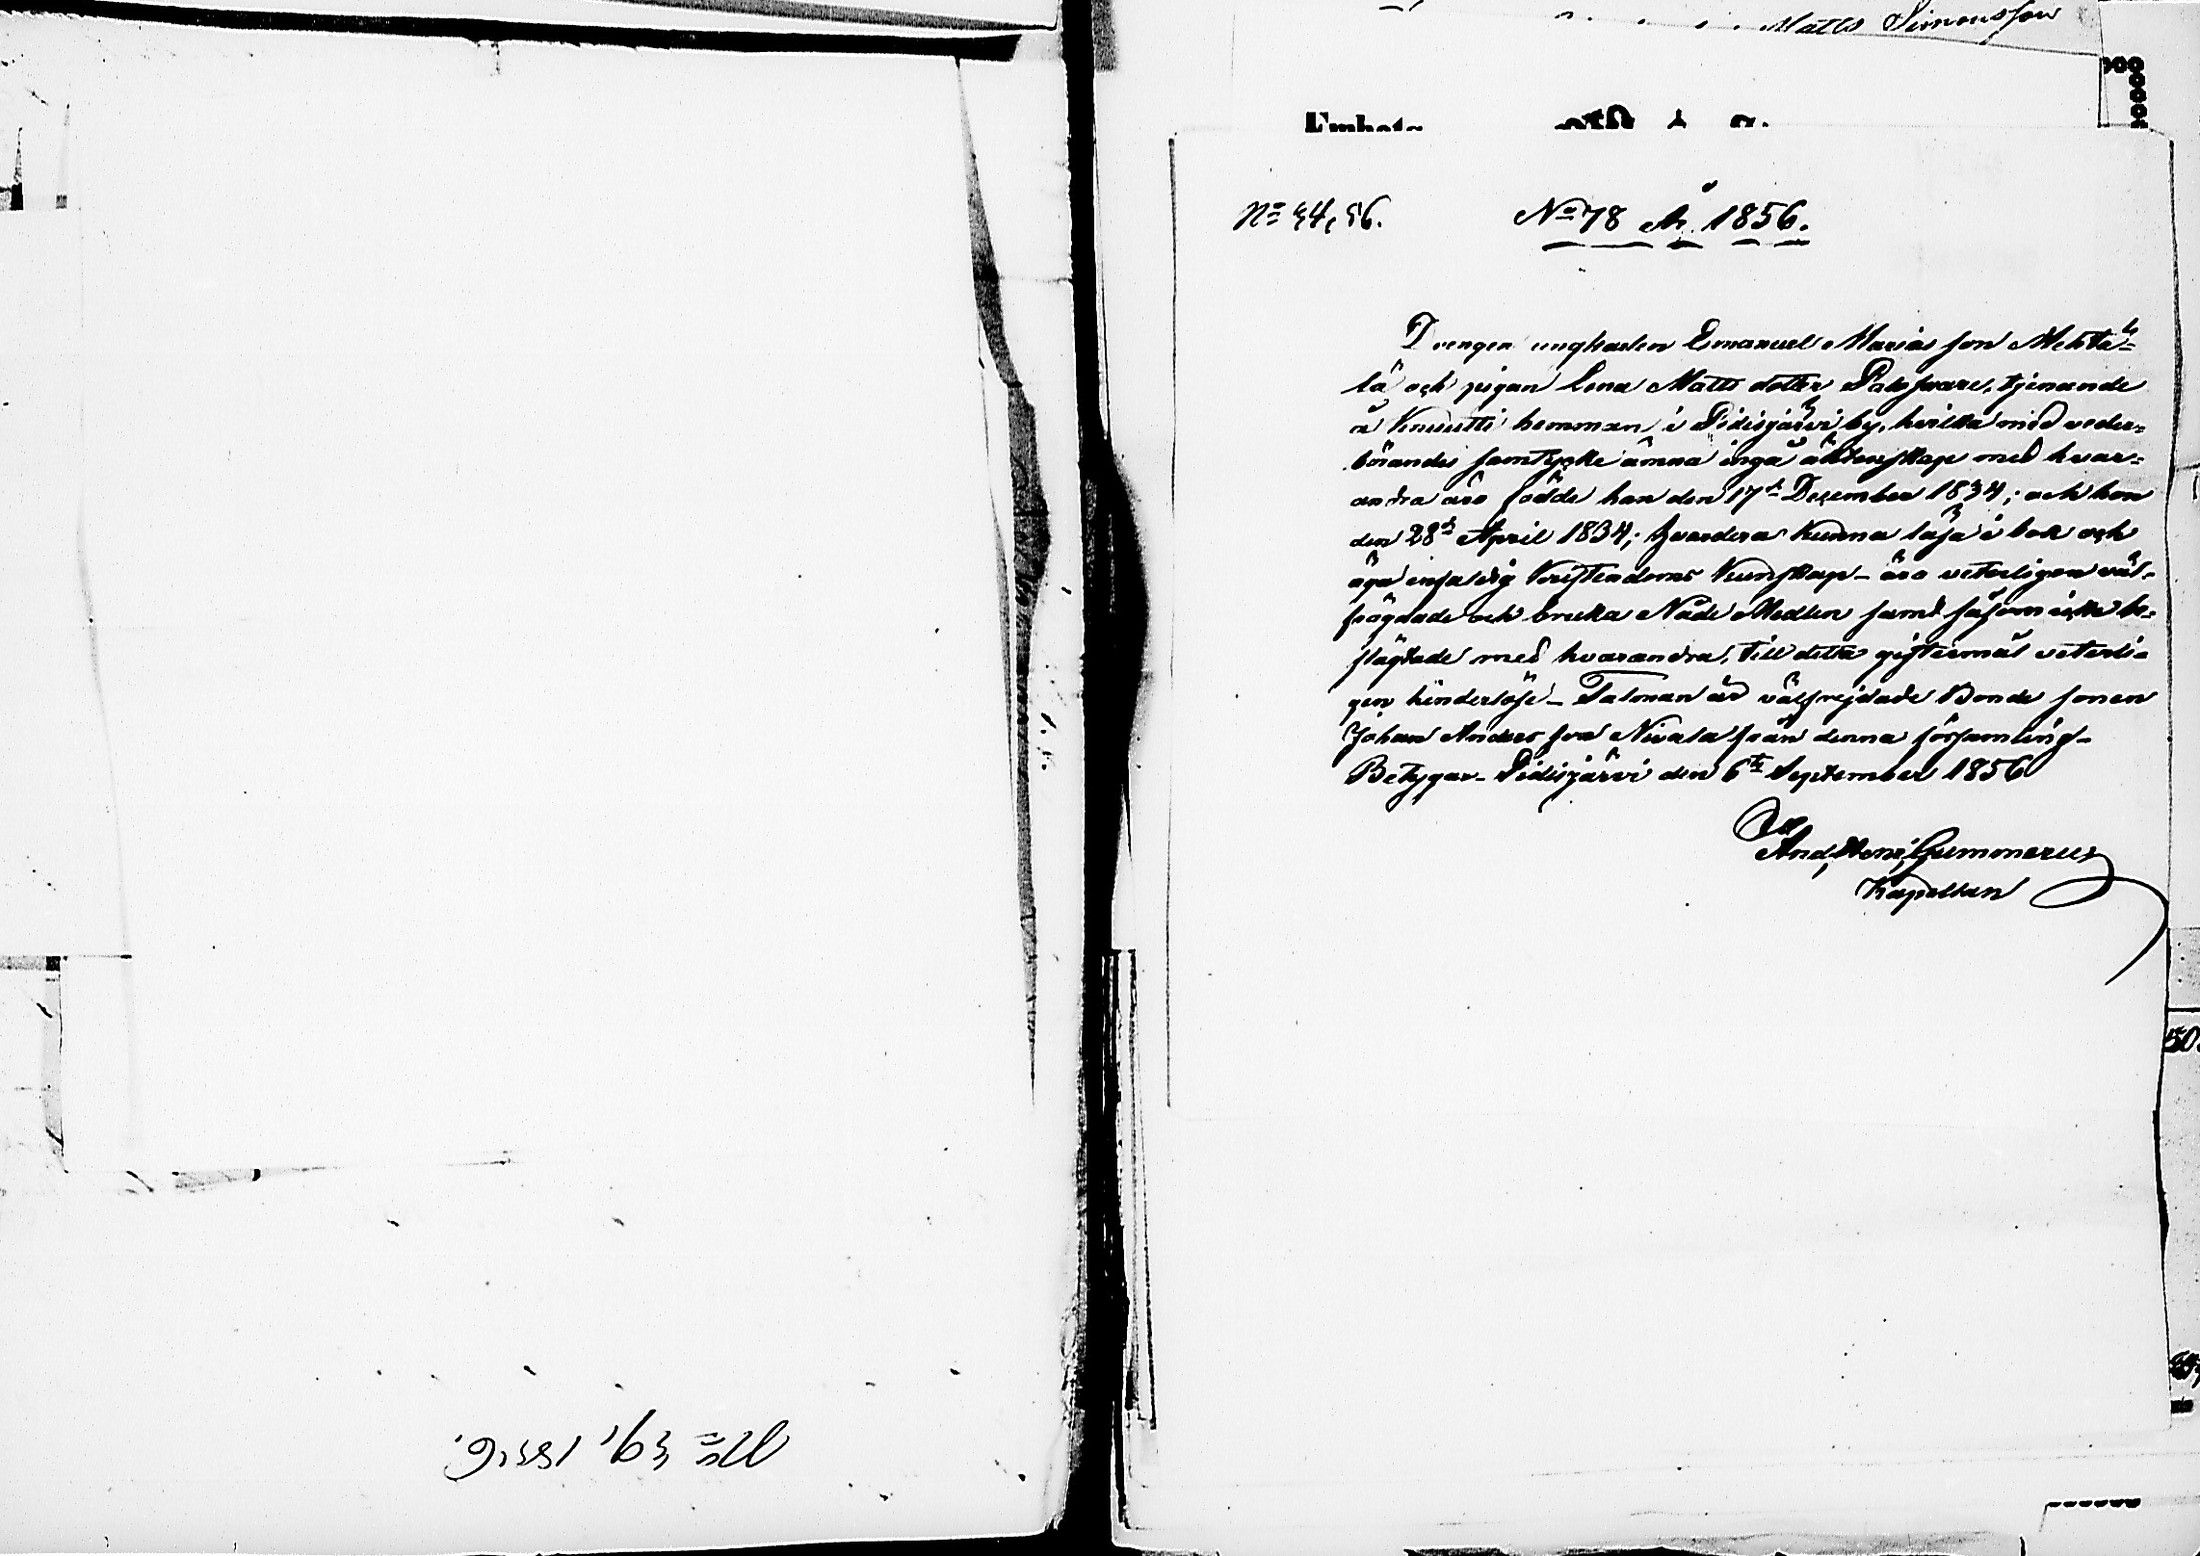 Matts Simonsson
Nº 44, 56.
Nº 78 År 1856.
Drengen ungkarlen Emanuel Mariæ son Mehtä=
lä och pigan Lena Matts dotter Palovaare, tjenande
å Knuutti hemman i Pidisjärvi by, hvilka med veder=
börandes samtycke ämna ingå äktenskap med hvar=
andra äro födde han den 17de December 1834; och hon
den 28de April 1834; hvardera kunna läsa i bok och
äga enfaldig Kristendoms Kunskap – äro veterligen väl-
frägdade och bruka Nåde Medlen samt såsom icke be-
slägtade med hvarandra, till detta giftermål veterli-
gen hinderlöse – Talman är välfrejdade Bonde sonen
Johan Anders son Nivala från denna församling –
Betygar – Pidisjärvi den 6te September 1856
And, Henr, Gummerus
Kapellan
Nº 39, 1856.